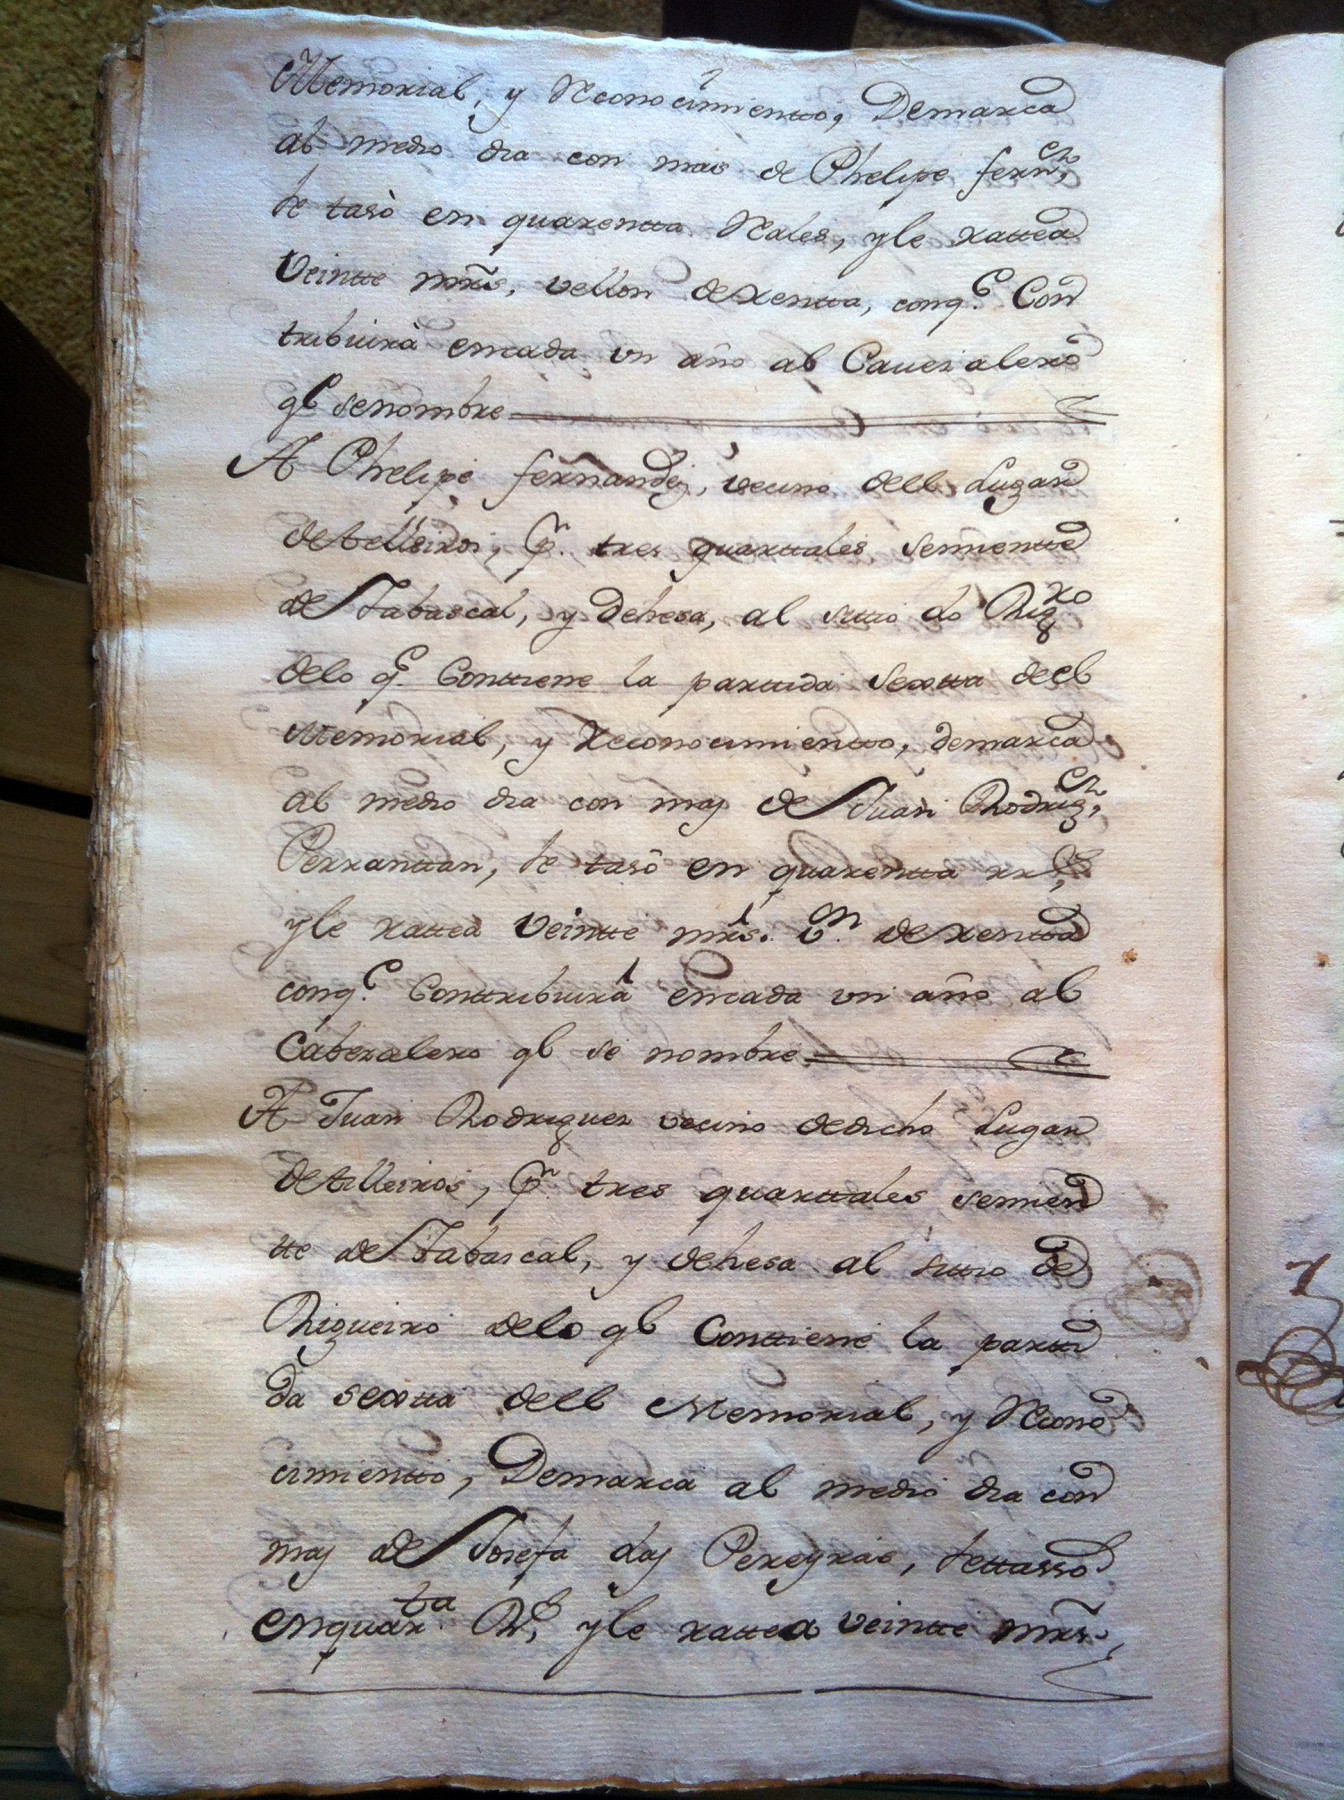 Memorial, y Reconocimientto, Demarca
al medio dia con mas de Phelipe fern.ez,
se tasò en quarentta Reales, y le rattea
Veintte mrs, vellon de Rentta, conq.e Con
tribuirà encada vn año al Cauezalero
ql senombre
A Phelipe fernandez, vecino dell Lugar
de telleiros, p.r tres quarttales semientte
de Jabascal, y Dehesa, al sittio do Rigro
delo q.e Conttiene la parttida Sextta del
Memorial, y Reconocimientto, demarca
al medio dia con mas de Juan Rodrig.ez,
Perranttan, se tasò en quarentta rr.s,
y le rattea Veintte mrs. v.n de rentta
conq.e Conttribuirá encada vn año al
Cabezalero ql se nombre
A Juan Rodriguez vecino dedicho Lugar
de tilleiros, p.r tres quarttales semien
tte de Jabascal, y dehesa al sittio de
Rigueiro delo ql Conttiene la partti
da sextta dell Memorial, y Recono
cimientto, Demarca al medio dia con
mas de Josefa das Pereyras, se ttasso
enquar.ta R.s, y le rattea veintte mrs.,